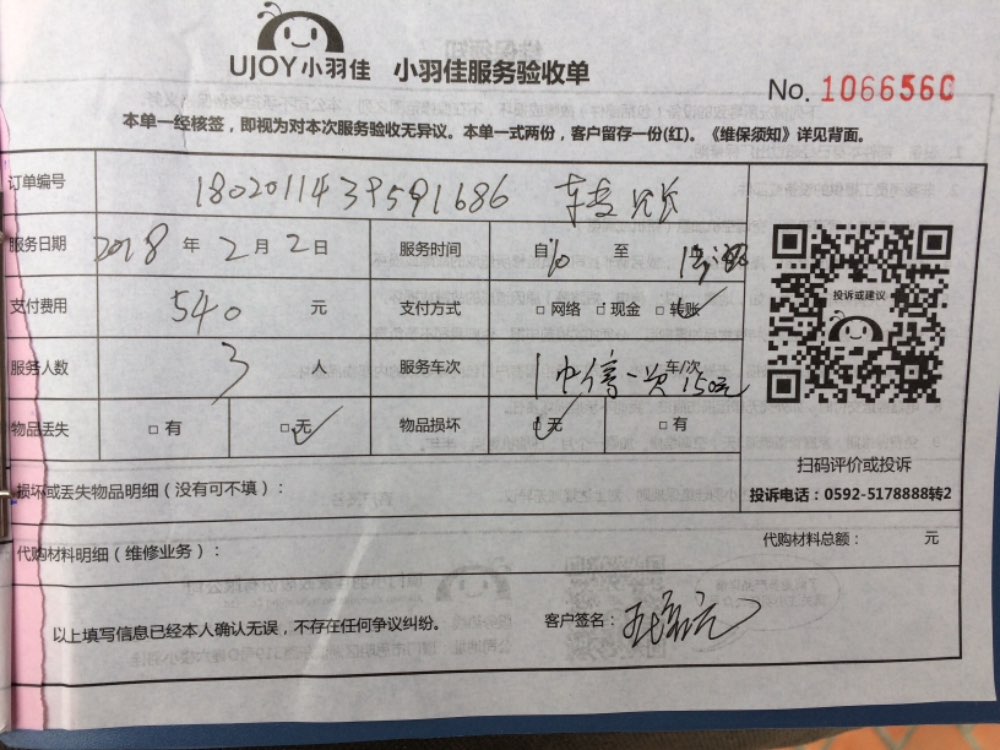 UJOY小羽佳 小羽佳服务验收单
No. 1066560
本单一经核签，即视为对本次服务验收无异议。本单一式两份，客户留存一份(红)。《维保须知》详见背面。
订单编号 1802011439591686 转账
服务日期 2018 年 2 月 2 日 服务时间 自 至
支付费用 540 元 支付方式 □ 网络 □ 现金 □ 转账
投诉或建议
服务人数 3 人 服务车次 1 中信一次 车/次 150元
物品丢失 □ 有 □ 无 物品损坏 □ 无 □ 有
扫码评价或投诉
损坏或丢失物品明细（没有可不填）：
投诉电话：0592-5178888转2
代购材料明细（维修业务）：
代购材料总额： 元
以上填写信息已经本人确认无误，不存在任何争议纠纷。 客户签名：